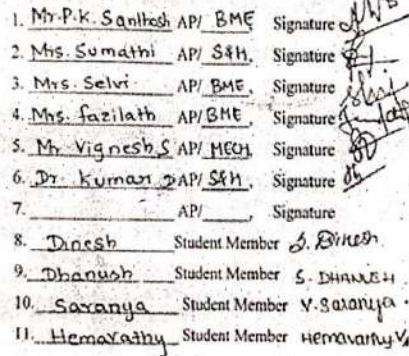 1. Mr.P.K. Santhosh AP/ BME Signature
2. Mrs. Sumathi AP/ S&H. Signature
3. Mrs. Selvi AP/ BME, Signature
4. Mrs. fazilath AP/ BME Signature
5. Mr. Vignesh.S AP/ MECH. Signature
6. Dr. Kumar AP/ S&H. Signature
7. AP/ , Signature
8. Dinesh Student Member S. Dinesh
9. Dhanush Student Member S. DHANUSH
10. Saranya Student Member V. Saranya
11. Hemavathy Student Member Hemavathy V